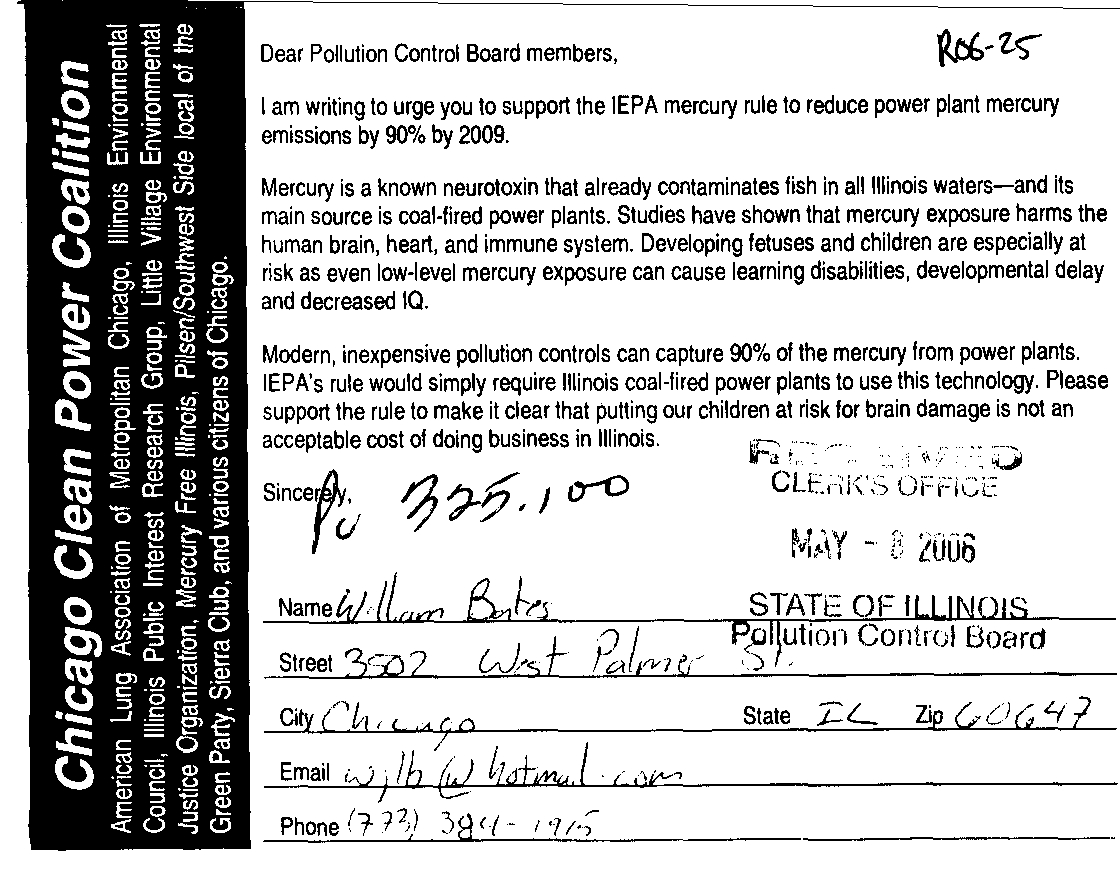 Chicago Clean Power Coalition
American Lung Association of Metropolitan Chicago, Illinois Environmental
Council, Illinois Public Interest Research Group, Little Village Environmental
Justice Organization, Mercury Free Illinois, Pilsen/Southwest Side local of the
Green Party, Sierra Club, and various citizens of Chicago.
R06-25
Dear Pollution Control Board members,
I am writing to urge you to support the IEPA mercury rule to reduce power plant mercury
emissions by 90% by 2009.
Mercury is a known neurotoxin that already contaminates fish in all Illinois waters—and its
main source is coal-fired power plants. Studies have shown that mercury exposure harms the
human brain, heart, and immune system. Developing fetuses and children are especially at
risk as even low-level mercury exposure can cause learning disabilities, developmental delay
and decreased IQ.
Modern, inexpensive pollution controls can capture 90% of the mercury from power plants.
IEPA's rule would simply require Illinois coal-fired power plants to use this technology. Please
support the rule to make it clear that putting our children at risk for brain damage is not an
acceptable cost of doing business in Illinois.
Sincerely,
325.100
RECEIVED
CLERK'S OFFICE
MAY - 8 2006
STATE OF ILLINOIS
Pollution Control Board
Name William Bates
Street 3502 West Palmer St.
City Chicago State IL Zip 60647
Email @hotmail.com
Phone (773) 384-1915